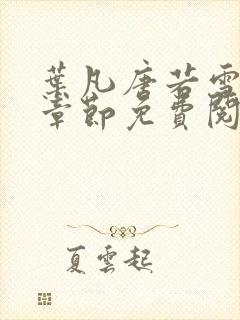 葉凡唐若雪
章節免費閱
夏雲起